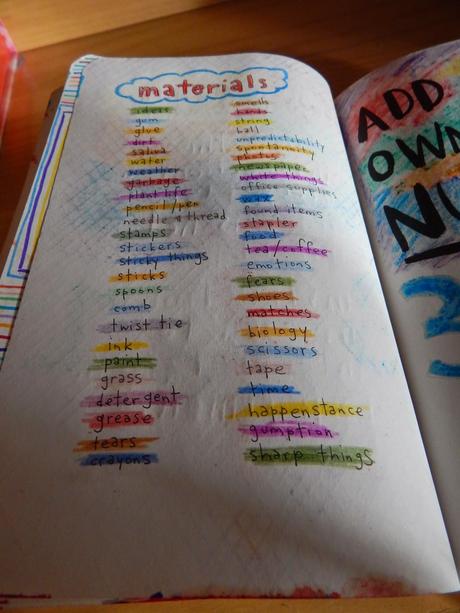 materials
ideas
gum
glue
dirt
saliva
water
weather
garbage
plant life
pencil/pen
needle & thread
stamps
stickers
sticky things
sticks
spoons
comb
twist tie
ink
paint
grass
detergent
grease
tears
crayons
smells
hands
string
ball
unpredictability
spontaneity
photos
newspaper
white things
office supplies
wax
found items
stapler
food
tea/coffee
emotions
fears
shoes
matches
biology
scissors
tape
time
happenstance
gumption
sharp things
ADD
OWN